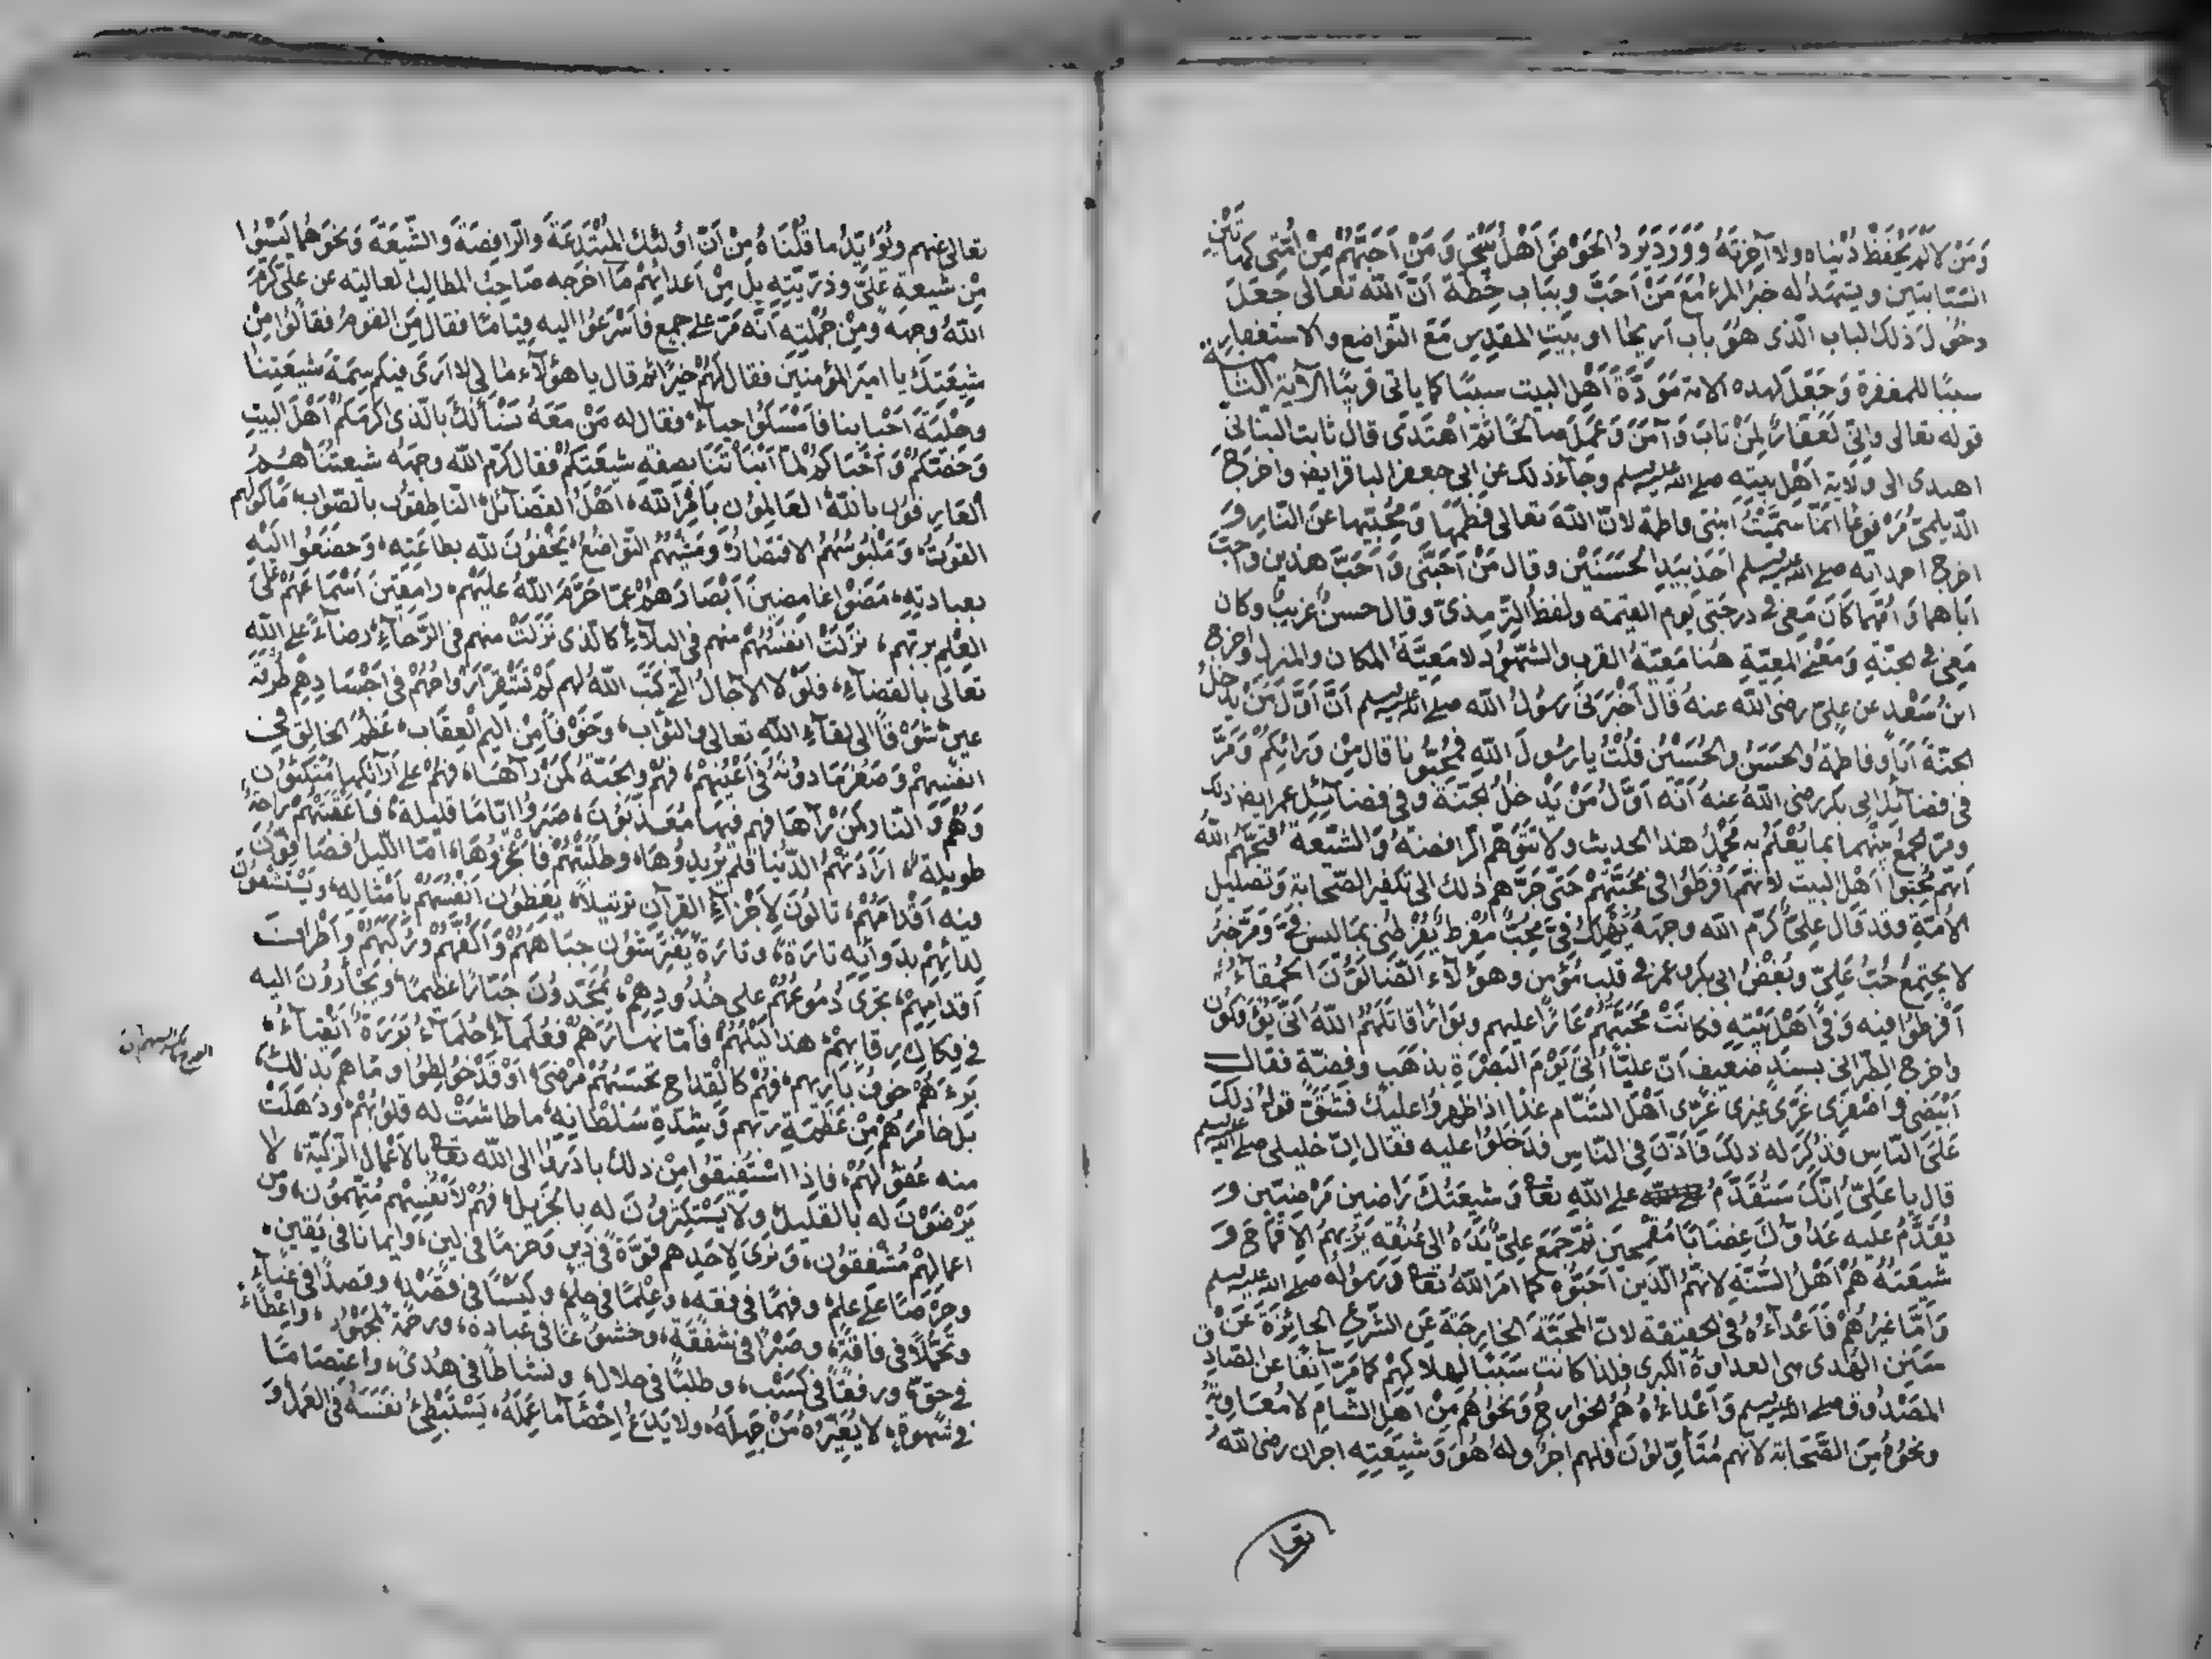 وَمَنْ لَا لَمْ يَحْفَظْ دُنْيَاه ولا آخِرَتَهُ وَوَرَدَ يَرِدُ الحَوْضَ أَهْلُ بَيْتِي وَمَنْ أَحَبَّهُمْ مِنْ أُمَّتِي كَهَاتَيْنِ
السَّبَّابَتَيْنِ ويشهَدُ له خبرُ المرءُ مَعَ مَنْ أَحَبَّ وبباب حِطَّة أَنَّ اللّٰه تعالى جَعَلَ
دخُولَ ذلك الباب الّذى هُوَ باب أريحا او بيتِ المقدسِ مَعَ التّواضع والاستغفار
سببًا للمغفرة وَجَعَلَ لهده الامة مَوَدَّةَ أَهْلِ البيت سببًا كما ياتى قريبًا الآية الثّامنة
قوله تعالى وإنِّي لَغَفَّارٌ لِمَنْ تابَ وَآمَنَ وَعَمِلَ صالحًا ثمّ اهْتَدَى قال ثابت البنانىّ
اهتدى الى وَلَاية أَهْلِ بيتِه صلى الله عليه وسلم وجاء ذلك عن ابى جعفر الباقر ايضا واخرج
الدّيلمىّ مَرْفوعًا انّما سَمَّيْتُ ابنتى فاطمة لانّ اللّٰه تعالى فَطَمَها وَمُحِبِّيها عن النّار و
اخرج احمد انّه صلى الله عليه وسلم اخَذَ بِيَدِ الحَسَنَيْن وقال مَنْ أَحَبَّنِى وَأَحَبَّ هذين واحبّ
أباهما وَأمّهما كَانَ مَعِى فى درجتى يوم القيمة ولفظ التِّرمِذىّ وقال حسنٌ غريبٌ وكان
مَعِى فى الجنّة وَمَعْنى المعيّةِ هُنا مَعيّةُ القرب والشّهُود لا مَعيّةُ المكان والمنزل واخرج
ابنُ سَعْد عن علىّ رضى اللّٰه عنهُ قَالَ أَخْبَرَنى رَسُولُ اللّٰه صلى الله عليه وسلم أَنَّ أَوَّلَ مَنْ يدخلُ
الجنّة أَنَا وفاطمةُ والحَسَنُ والحُسَيْنُ قُلْتُ يا رسُولَ اللّٰه فمُحِبُّونا قال مِنْ وَرَائِكُم وَمَرَّ
فى فضآئل ابى بكر رضى اللّٰه عنهُ أَنّه أَوَّلُ مَنْ يَدْخلُ الجنّة وفى فضآئل عمر ايضا ذلك
ومرّ الجمعُ بَيْنهما بما يُعْلَمُ بهِ مَحْمَلُ هذا الحديث ولا تتوهّم الرّافضة وَالشّيعة قبّحهُم اللّٰه
أنّهم مُحِبُّوا أَهْلِ البيت لانّهم أَفْرَطُوا فى مَحَبَّتِهِمْ حَتّى جَرَّهم ذلك الى تكفير الصّحابة وَتضليل
الأُمَّةِ وقد قال علىٌّ كرّم اللّٰه وجهَهُ يَهْلِكُ فىَّ مُحِبٌّ مُفْرِطٌ يُقَرِّظُنى بِمَا ليس فىّ وَمَرّ خبرُ
لا يجتمعُ حُبُّ عَلِىّ وبُغْضُ ابى بكر وعمر فى قلب مؤمن وهؤلآء الضّالّونَ الحُمَقَآءُ
أَفْرَطُوا فيه وَفى أَهْلِ بَيْتِهِ فكانَتْ مَحَبَّتُهُمْ عَارًا عليهم وبَوَارًا قاتَلَهُمُ اللّٰهُ انّى يُؤْفَكُونَ
واخرج الطّبرانى بسندٍ ضعيفٍ انّ عليًّا أُتِىَ يَوْمَ البَصْرَةِ بذَهَبٍ وفضّةٍ فقال
أَبْيَضِى وَاصْفَرِى غَرِّى غيرى غَرِّى أَهْلَ الشّام غدًا اذا ظهرُوا عليك فَشَقَّ قولهُ ذلِكَ
عَلَى النّاس فَذُكِرَ له ذلكَ فَأَذِنَ فى النّاس فدَخَلُوا عليه فقال انّ خليلى صلى الله عليه وسلم
قال يا عَلِىّ إنّكَ سَتَقْدَمُ على اللّٰهِ تعا وَشيعَتُكَ رَاضين مَرْضِيّين وَ
يَقْدَمُ عليه عَدُوُّكَ غِضَابًا مُقْمَحِين ثُمّ جَمَعَ علىٌّ يَدَهُ الى عُنُقِه يُرِيهِمُ الإقْمَاحَ وَ
شيعَتُهُ هُمْ أَهْلُ السُّنَّةِ لانّهُمُ الّذينَ أَحَبُّوهُ كما امَرَ اللّٰهُ تعا وَرَسُولُه صلى الله عليه وسلم
وَأَمّا غيرُهُمْ فَأَعْداءُهُ فى الحقيقة لانّ المحبّةَ الخارجَةَ عَنِ الشّرعِ الحائِرَةَ عَنْ
سَنَنِ الهُدى هى العداوةُ الكبرى فلذا كانت سَبَبًا لهلاكهِمْ كما مَرّ آنفًا عن الصّادق
المَصْدُوق صلى الله عليه وسلم وَأَعْداءُهُ هُمُ الخوارجُ وَنحوُهُم مِنْ أَهلِ الشّامِ لا مُعَاوِيَةُ
ونحوُهُ مِنَ الصّحَابة لانّهم مُتَأَوِّلُونَ فلهم اجرٌ وله هُوَ وَشِيعَتِهِ اجران رضى اللّٰه
تعا
تعالى عنهم ويُؤَيِّدُ ما قُلْنَاهُ مِنْ أَنّ أُولئِكَ المُبْتَدِعَةَ والرّافِضَةَ والشّيعَةَ وَنحوَهُما لَيْسُوا
مِنْ شيعَةِ عَلِىٍّ وذرّيّتِهِ بل مِنْ أَعدائِهِمْ مَا اخرجه صَاحِبُ المطالِب العاليه عن علىّ كَرَّمَ
اللّٰهُ وجهَهُ وَمِنْ جُمْلَتِهِ أَنّه مَرّ على جمعٍ فأَسْرَعُوا اليه قِيَامًا فقال مَنِ القومُ فقالُوا مِنْ
شِيعَتِكَ يا اميرَ المؤمنين فقال لَهُمْ خيرًا ثم قال يا هؤلآءِ ما لى لا ارَى فيكم سِمَةَ شيعَتِنَا
وحِلْيَةَ أَحْبابِنا فأَمْسَكُوا حياءً فقال له مَنْ مَعَهُ نَسْأَلُكَ بالّذى أكرَمَكُمْ أَهْلَ البيتِ
وَخصّكُمْ وَحَبَاكُمْ لَمَّا أَنْبَأْتَنَا بصفةِ شيعَتِكُمْ فقال كرّم اللّٰه وجهَهُ شيعتُنا هُمُ
العَارِفُونَ باللّٰهِ العَامِلُونَ بأَمْرِ اللّٰهِ، أهْلُ الفضآئل، النّاطِقُونَ بالصّواب، مَأْكولُهم
القُوتُ، وَمَلْبُوسُهُمُ الاقتصادُ، وَمَشْيُهُمُ التّواضُعُ، نَجَعُوا للّٰه بطاعَتِهِ، وَخَضَعُوا اليهِ
بعبادتِهِ، مَضَوْا غامِضينَ أَبْصَارَهُمْ عمّا حَرّمَ اللّٰهُ عليهِمْ، رامِقِينَ أَسْمَاعَهُمْ على
العِلْمِ بربّهم، نَزَلَتْ أنفُسُهُمْ منهم فى البلآءِ كالّذى نَزَلَتْ منهم فى الرّخاءِ، رضآءً على اللّٰهِ
تعالى بالقضآءِ، فلَوْلا الآجالُ الّتى كَتَبَ اللّٰهُ لهم لَمْ تَسْتَقِرَّ أَرْواحُهُمْ فى أَجْسَادِهِمْ طَرْفَةَ
عينٍ شَوْقًا الى لقآءِ اللّٰهِ تعالى والثّواب، وَخَوْفًا مِنْ اليمِ العِقَاب، عَظُمَ الخالِقُ فى
انفُسِهِمْ وَصَغُرَ مَا دونَهُ فى أَعْيُنِهِمْ، فهُمْ والجَنّةُ كَمَنْ رَآهَا، فهُمْ على أَرَآئكها مُتَّكِئُون
وَهُمْ وَالنّار كَمَنْ رَآهَا فهم فيها مُعَذَّبُونَ، صَبَرُوا ايّامًا قليلةً، فأَعْقَبَتْهُمْ راحَةً
طويلةً، أَرَادَتْهُمُ الدّنيا فلمْ يُرِيدُوهَا، وطَلَبَتْهُمْ فأَعْجَزُوهَا، أمّا اللّيلُ فصَافُّونَ
فيه أَقْدامَهُمْ، تالُونَ لأجزاءِ القرآن ترتيلًا، يَعِظُون أنفُسَهُمْ بأَمْثَاله، ويَسْتَشْفُونَ
لِدَائِهِمْ بِدَوَائِهِ تارَةً، وتارَةً يَفْتَرِشُونَ جِبَاهَهُمْ وَأَكُفَّهُمْ وَرُكَبَهُمْ وَأَطْرافَ
أَقدامِهِمْ، تجرى دُمُوعُهُمْ على خُدُودِهِمْ، يُمَجِّدُونَ جَبّارًا عَظيمًا، ويَجْأَرُونَ اليه
فى فِكاكِ رِقابِهِمْ، هذا لَيْلُهُمْ، فأَمّا نهارُهُمْ فعُلَمَاءُ حُلَمَآءُ بَرَرَةٌ أَتْقِيَآءُ،
بَرَاهُمْ خوفُ بارِيهِم، فَهُمْ كالْقِداحِ تَحْسَبُهُمْ مَرْضَى، أَوْ قَدْ خُولِطُوا وَمَا هم بذلك،
بَلْ خامَرَهُمْ مِنْ عَظَمَةِ ربّهم وَشِدّةِ سَلطَانِه، ماطاشَتْ له قلوبُهُمْ، وذَهَلَتْ
منه عُقُولُهُمْ، فاذا اسْتَفِيقُوا مِنْ ذلك بادَرُوا الى اللّٰه تعا بالأعْمالِ الزّكيّة، لا
يَرْضَوْنَ له بالقليل ولا يَسْتَكْثِرُونَ له بالجزيل، فهُمْ لأنفُسِهِم مُتَّهِمُون، ومن
اعمالهِمْ مُشْفِقُون، وَتَرَى لأحَدِهِم قُوّةً فى دِينٍ وَحزمًا فى لينٍ، وَإيمانًا فى يَقينٍ،
وحِرْصًا على عِلمٍ، وفهمًا فى فقهٍ، وَعِلْمًا فى حِلمٍ، وكَيْسًا فى قَصْدٍ، وقصدًا فى غِنًآءٍ،
وتَجَمُّلًا فى فاقَةٍ، وصَبْرًا فى شَفَقَةٍ، وخشُوعًا فى عبادةٍ، ورحمةً لمجهُودٍ، واعطآءً
فى حقٍّ، ورفقًا فى كَسْبٍ، وطلبًا فى حلالٍ، ونشاطًا فى هُدًى، واعتِصَامًا
فى شَهْوَةٍ، لا يَغُرُّهُ مَنْ جَهِلَهُ، ولا يَدَعُ إحْصَآءَ ما عَمِلَهُ، يَسْتَبْطِئُ نفسَهُ فى العَمَل وَ